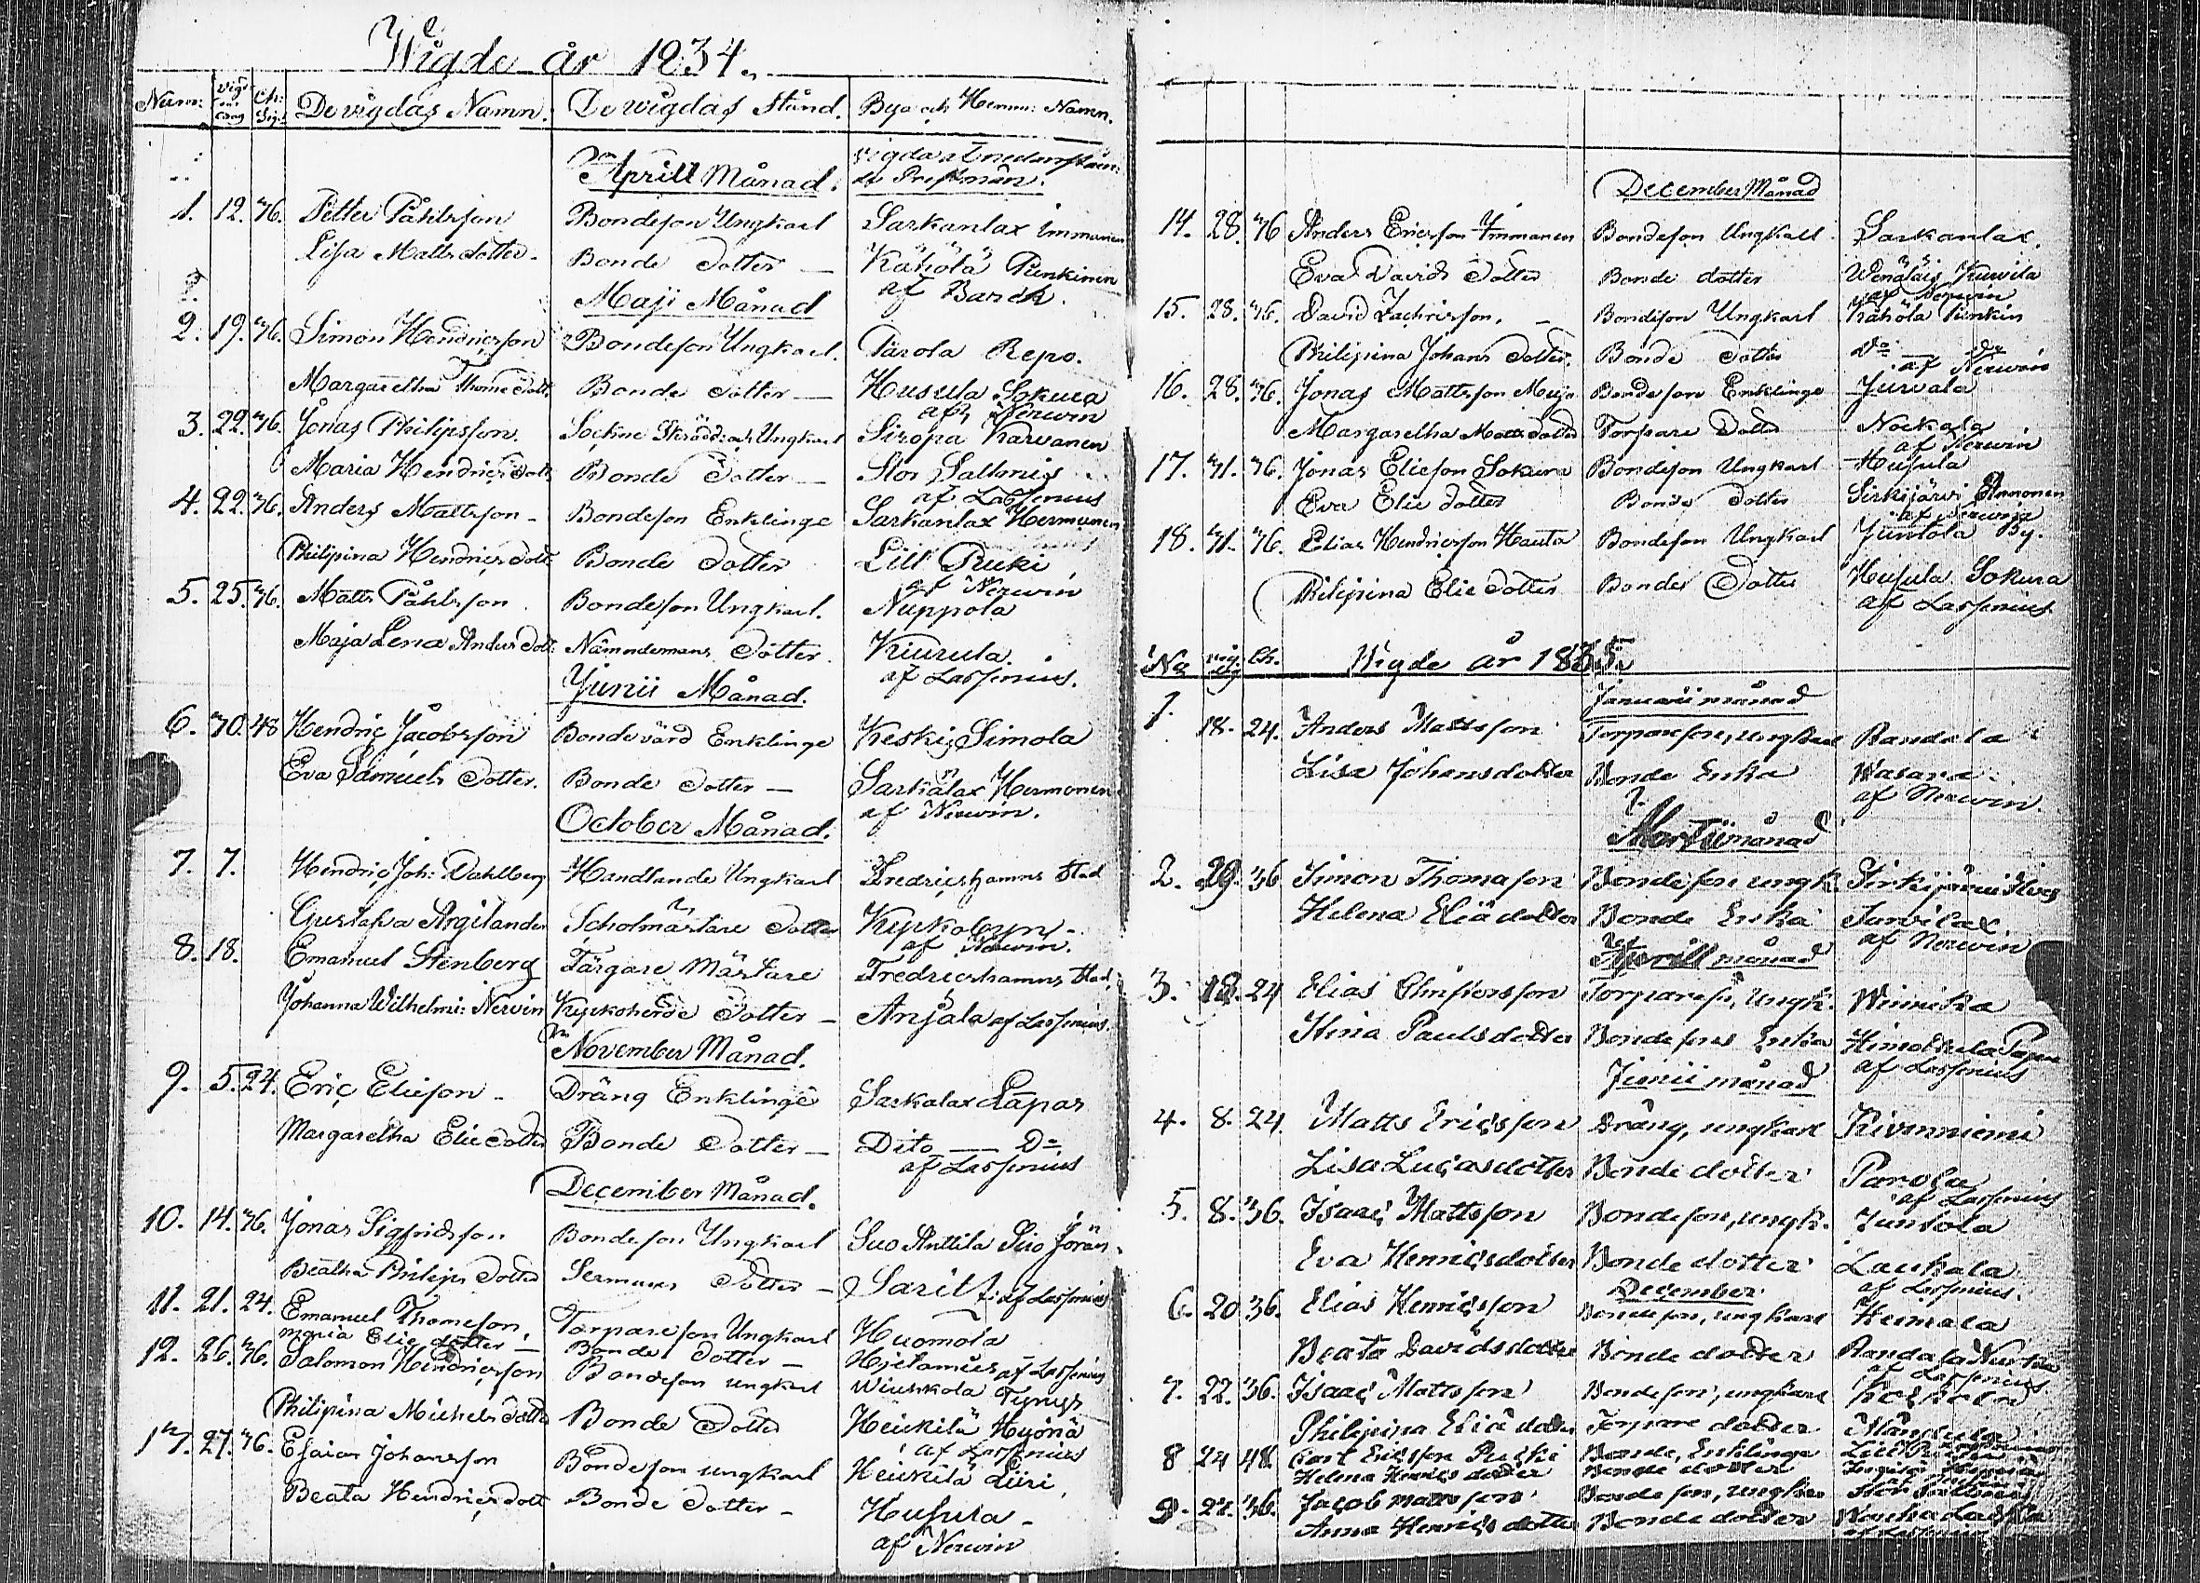 Wigde år 1834.
Num: Vigs dag Ch: Sig: De vigdas Namn. De wigdas Stånd. Bya och Hemm: Namn.
Aprill Månad. vigda af nedanstäen:
de Prestmän.
1. 12. 36. Petter Påhlsson Bondeson Ungkarl Sarkanlax Immonen
Lisa Matts dotter - Bonde dotter — Kähölä Punkinen
af Barck.
Maji Månad
2. 19. 36. Simon Hendricsson Bondeson Ungkarl. Parola Repo.
Margaretha Thome dott: Bonde dotter — Husula Sokura
af Nerwin
3. 22. 36. Jonas Philipsson. Sockne Skrädd: och Ungkarl Siropa Karvanen
Maria Hendrics dott: Bonde dotter — Stor Sallmis
af Lassenius
4. 22. 36. Anders Mattsson - Bondeson Enklinge Sarkanlax Hermunen
Philipina Hendrics dott: Bonde dotter Lill Pucki
af Nerwin
5. 25. 36. Matts Påhlsson Bondeson Ungkarl. Nuppola
Maja Lena Anders dott: Nämndemans dotter. Kiurula.
af Lassenius.
Junii Månad.
6. 30. 48 Hendric Jacobsson Bonde värd Enklinge Keskis Simola
Eva Samuels dotter. Bonde dotter — Sarkalax Hermonen
af Nerwin.
October Månad.
7. 7. Hendric Joh: Dahlberg Handlande Ungkarl Fredricshamns Stad
Gustafva Argilander Scholmästare dotter Kyrkobyn -
af Nerwin.
8. 18. Emanuel Stenberg Färgare Mästare Fredricshamns Stad
Johanna Wilhelmi: Nerwin Kyrkoherde dotter — Anjala af Lassenius.
November Månad.
9. 5. 24. Eric Elieson - Dräng Enklinge Sarkalax Läpas
Margaretha Elie dotter Bonde dotter — Dito — Do
af Lassenius
December Månad.
10. 14. 36. Jonas Sigfridsson Bondeson Ungkarl Suo Anttila Suo Jörän
Beatha Philips dotter Sexmans dotter — Sarit af Lassenius
11. 21. 24. Emanuel Thomeson, Torpareson Ungkarl Huomola
Maria Elie dotter — Bonde dotter — Hietamies af Lassenius
12. 26. 36. Salomon Hendricsson Bondeson ungkarl Wiuhkola Tyrys
Philipina Michels dotter Bonde dotter Heickilä Hyönä
af Lassenius
13. 27. 36. Esaias Johansson Bondeson ungkarl Heickilä Liiri
Beata Hendrics dott Bonde dotter — Husula -
af Nerwin
December Månad
14. 28. 36 Anders Ericsson Immonen Bondeson Ungkarl Sarkanlax.
Eva Davids dotter Bonde dotter Wenäläis Kurvila
af Nerwin
15. 28. 36. David Zachrisson. - Bondeson Ungkarl Kähölä Punkin
Philipina Johans dotter. Bonde dotter Do Do
af Nerwin
16. 28. 36. Jonas Mattsson Mujo Bondeson Enklinge Jurvala
Margaretha Matts dotter Torpare dotter Nockala
af Nerwin
17. 31. 36. Jonas Elieson Sokura Bondeson Ungkarl Husula
Eva Elie dotter Bonde dotter Sirkijärvi
af Nerwin
18. 31. 36. Elias Hendricsson Hauta Bondeson Ungkarl Juntola By.
Philipina Elie dotter Bondes dotter Husula Sokura
af Lassenius
No vig. dg Ch. Wigde år 1835.
Januari månad
1. 18. 24. Anders Mattsson Torpareson, ungkarl Randala
Lisa Johansdotter Bonde Enka Wasara
af Nerwin.
Martii månad
2. 29. 36 Simon Thomason Bondeson ungk. Sirkijärvi
Helena Eliä dotter Bonde Enka Turvilax
af Nerwin
Aprill månad
3. 18. 24 Elias Christersson Torpareso, Ungk. Winnikka
Stina Paulsdotter Bondesons Enka Himottula
af Lassenius
Junii månad
4. 8. 24. Matts Ericsson Dräng, ungkarl Kivenniemi
Lisa Lucasdotter Bonde dotter Parola
af Lassenius
5. 8. 36. Isaac Mattsson Bondeson, ungk. Juntola
Eva Henricsdotter Bonde dotter Laukala
af Lassenius.
December
6. 20 36. Elias Henricsson Bondeson, ungkarl Heimala
Beata Davidsdotter Bonde dotter Randala
af Lassenius.
7. 22. 36. Isaac Mattsson Bondeson, ungkarl
Philipina Eliä dotter Torpare dotter Mänttula
8 24 48 Carl Ericsson Pucki Bonde, Enklinge
Helena Henrics dotter Bonde dotter
9. 27. 36. Jacob Mattsson Bondeson, ungkarl
Anna Henrics dotter Bonde dotter